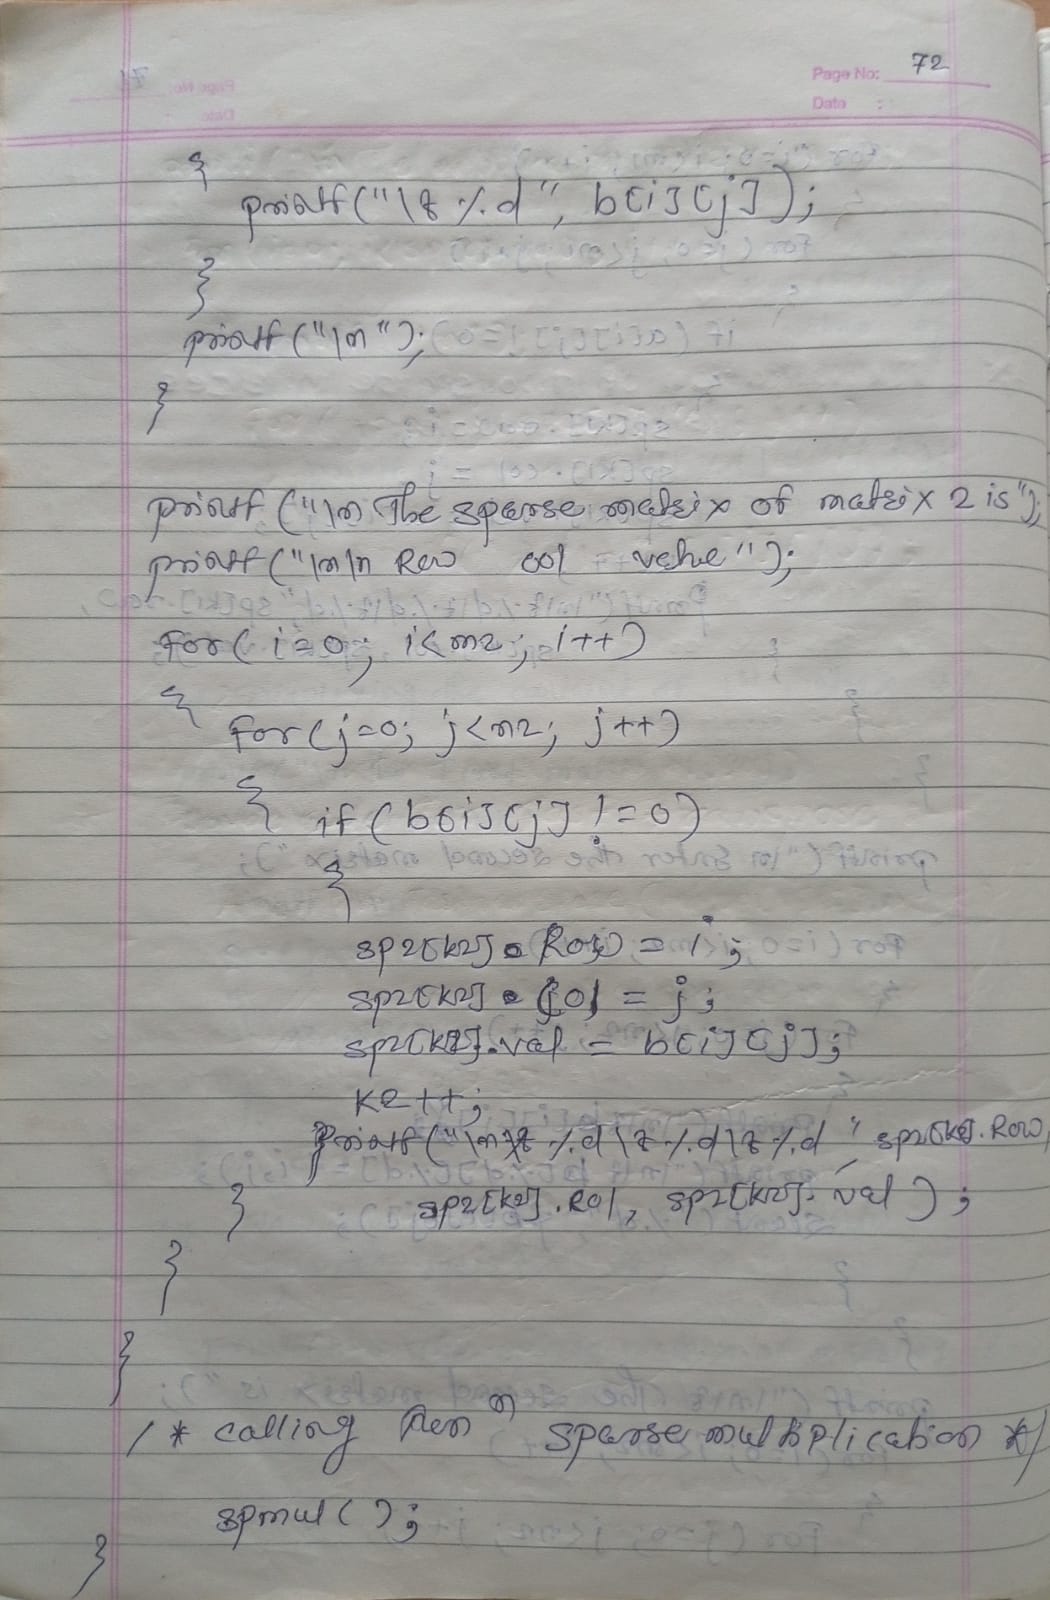 Page No: 72
Date :
{
printf("\t %d", b[i][j]);
}
printf("\n");
}
printf ("\n The sparse matrix of matrix 2 is");
printf("\n\n Row col value");
for( i=0; i<m2; i++)
{
for(j=0; j<n2; j++)
{ if (b[i][j] != 0)
{
sp2[k2].Row = i;
sp2[k2].Col = j;
sp2[k2].val = b[i][j];
k2++;
printf("\n\t %d\t %d\t %d", sp2[k2].Row,
} sp2[k2].Rol, sp2[k2].val);
}
}
/* calling fun^n sparse multiplication */
spmul();
}